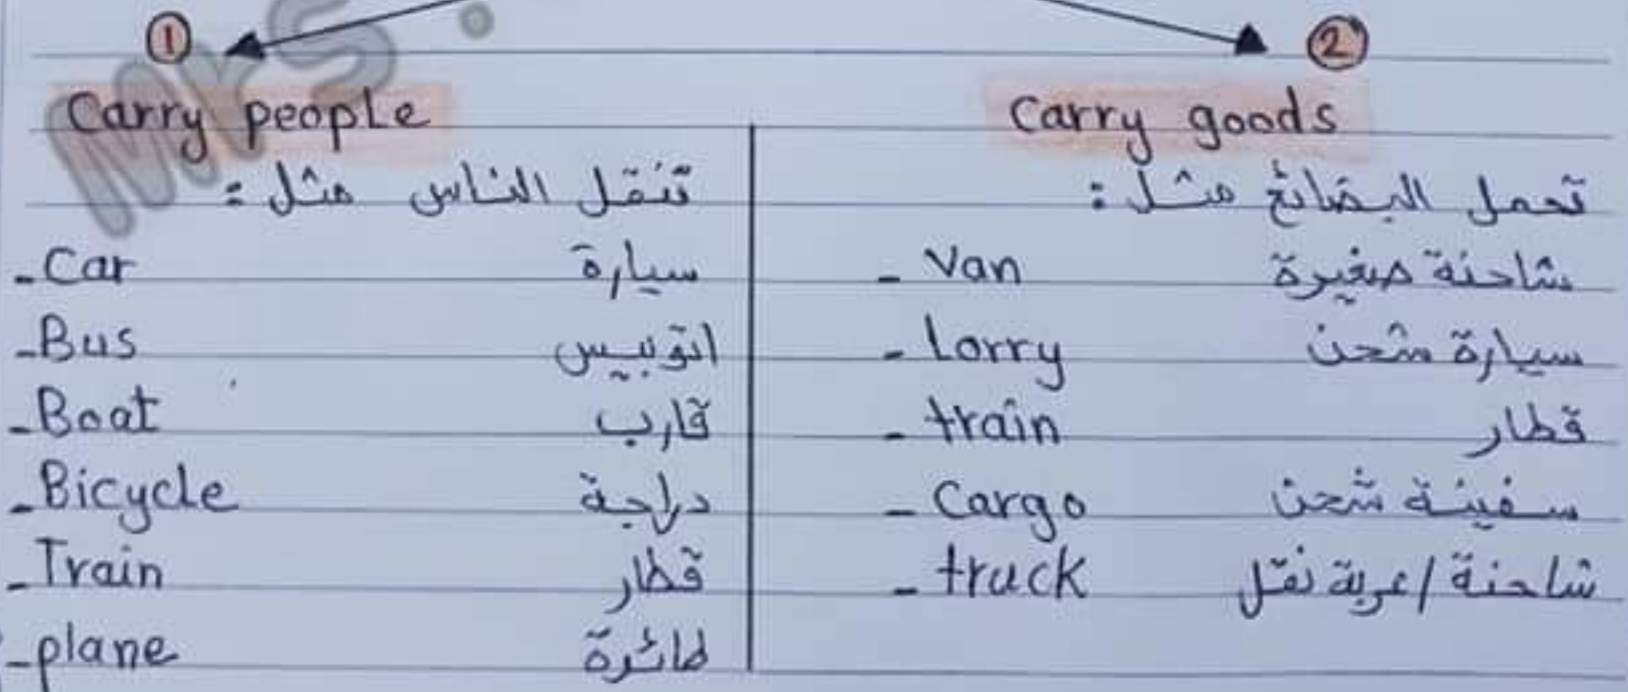 ① ②
Carry people
تنقل الناس مثل :
- Car سيارة
- Bus اتوبيس
- Boat قارب
- Bicycle دراجة
- Train قطار
- plane طائرة
Carry goods
تحمل البضائع مثل :
- Van شاحنة صغيرة
- Lorry سيارة شحن
- train قطار
- Cargo سفينة شحن
- truck شاحنة / عربة نقل
Mrs.